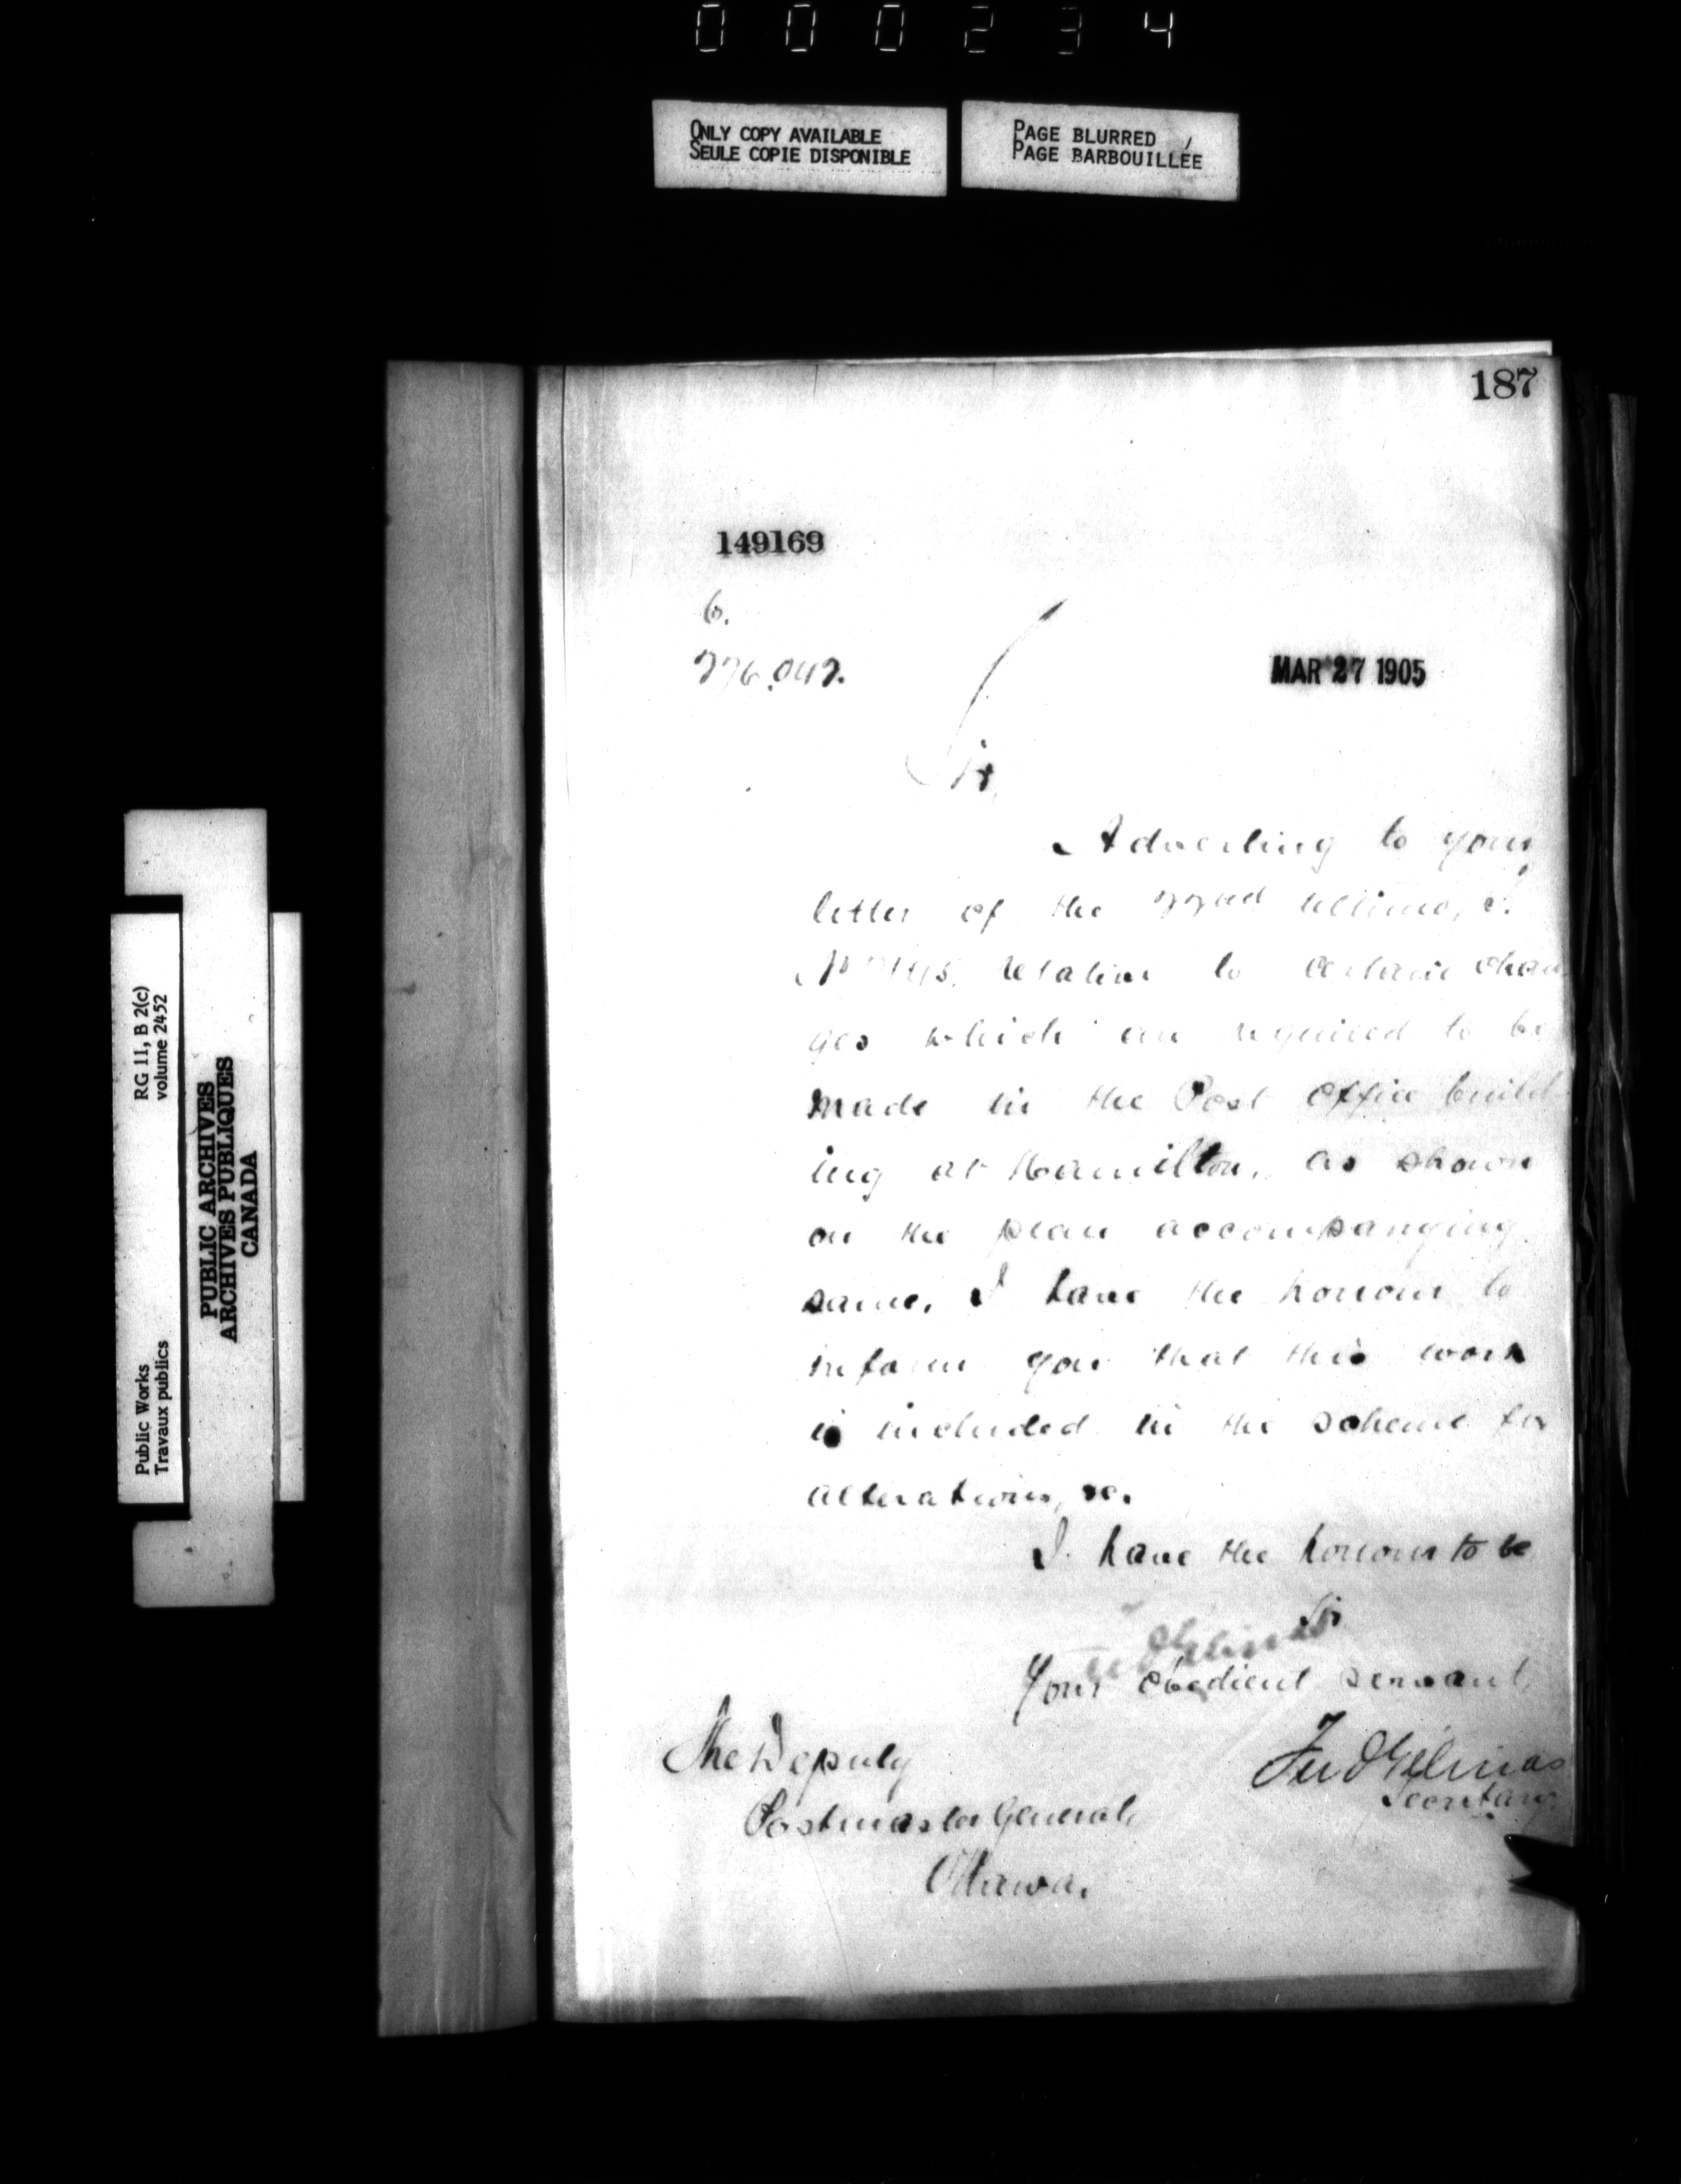 000234
ONLY COPY AVAILABLE
SEULE COPIE DISPONIBLE
PAGE BLURRED
PAGE BARBOUILLÉE
187
149169
6.
276.042.
MAR 27 1905
Sir,
Adverting to your
letter of the 22nd ultimo, S.
relative to certain chan
ges which are required to be
made in the Post Office build-
ing at Hamilton, as shown
on the plan accompanying
same, I have the honour to
inform you that this work
is included in the scheme for
alterations, &c.
I have the honour to be
Sir
Your obedient servant,
Fred Gelinas
Secretary
The Deputy
Postmaster General,
Ottawa.
RG 11, B 2(c)
volume 2452
Public Works
Travaux publics
PUBLIC ARCHIVES
ARCHIVES PUBLIQUES
CANADA